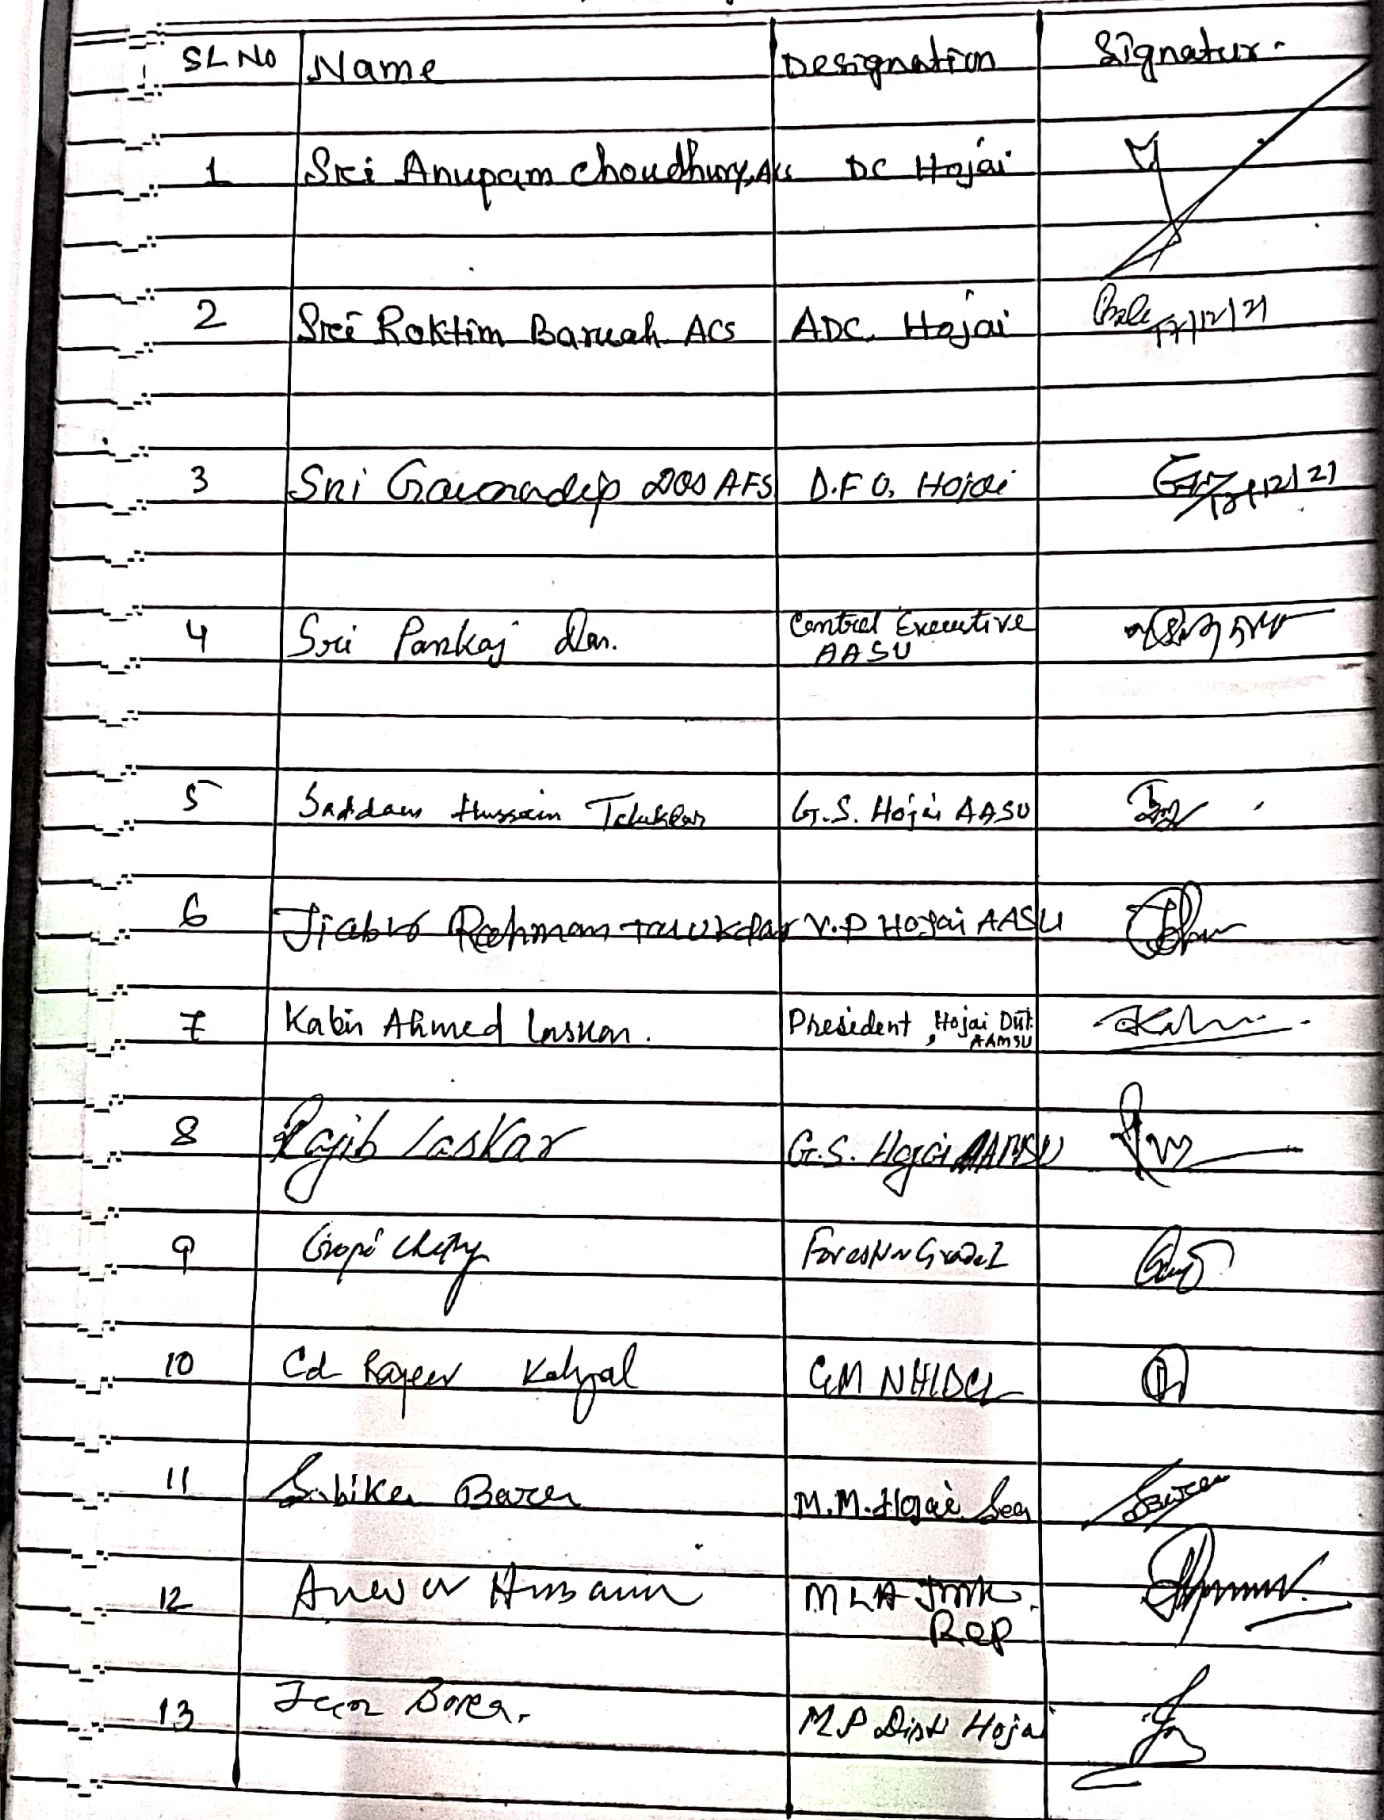 SL No Name Designation Signatur.
1 Sri Anupam Choudhury, ACS DC Hojai
2 Sri Roktim Baruah ACS ADC, Hojai 17/12/21
3 Sri Gaurandip Das AFS D.F.O, Hojai 17/12/21
4 Sri Pankaj Das. Central Executive
AASU
5 Saddam Hussain Talukdar G.S. Hojai AASU
6 Rahman Talukdar V.P Hojai AASU
7 Kabir Ahmed Laskar. President, Hojai Dist.
AAMSU
8 Rajib Laskar G.S. Hojai AAMSU
9 Gopi Chetry Grade I
10 Rajeev GM NHIDCL
11 Bora M.M. Hojai
12 Anewar Hussain MLA JMK.
Rep
13 Bora. M.P Dist Hojai